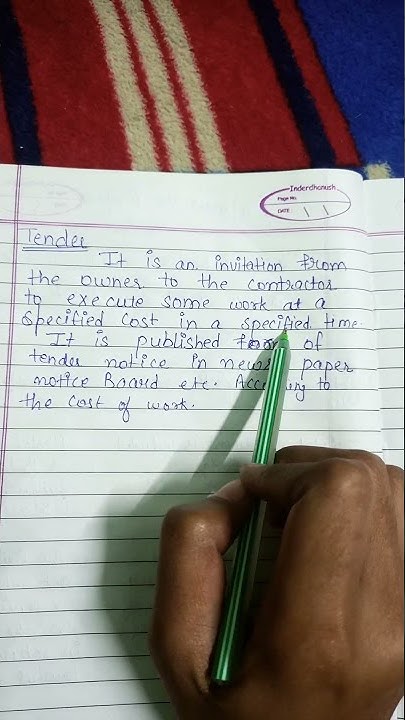 Inderdhanush
Page No.
DATE
Tender
It is an invitation from
the owner to the contractor
to execute some work at a
specified cost in a specified time.
It is published of
tender notice in news paper
notice Board etc. According to
the cost of work.